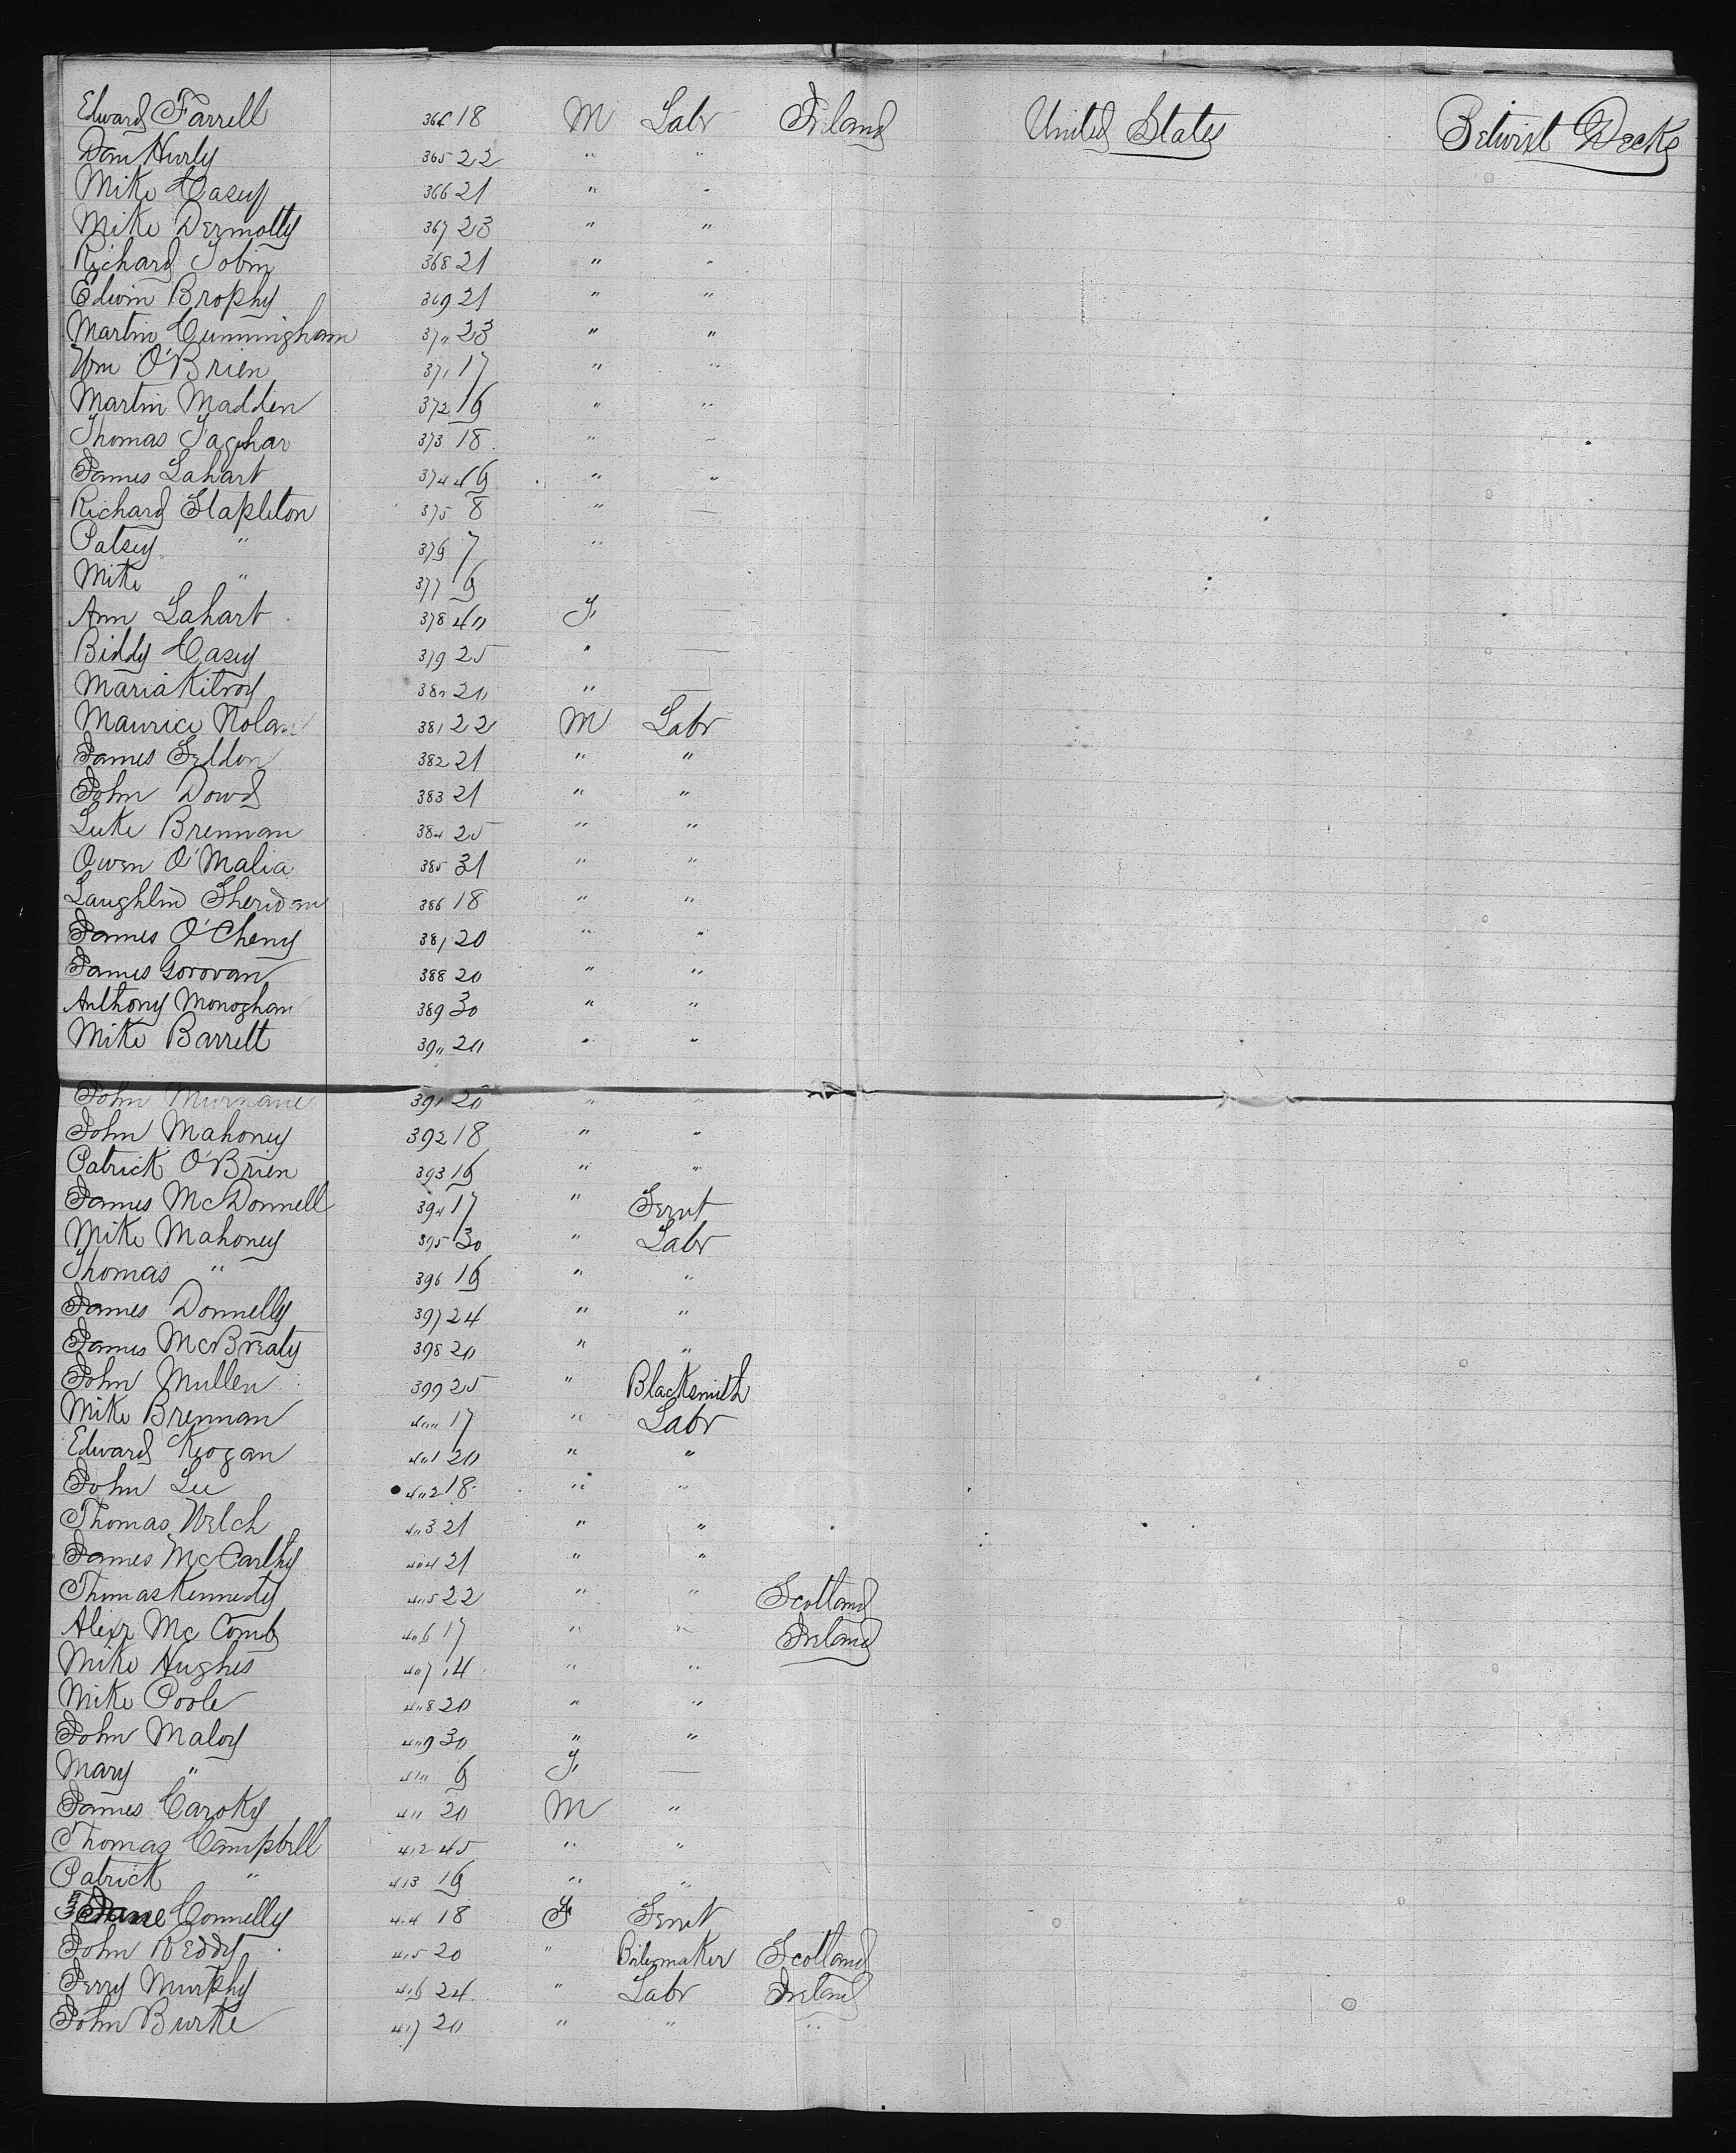 Edward Farrell 364 18 M Labr Ireland United States Betwixt Decks
Dan Hurly 365 22 " "
Mike Casey 366 21 " "
Mike Dermotty 367 23 " "
Richard Tobin 368 21 " "
Edwin Brophy 369 21 " "
Martin Cunningham 370 23 " "
Wm O'Brien 371 17 " "
Martin Madden 372 16 " "
Thomas 373 18 " "
James Lahart 374 46 " "
Richard Stapleton 375 8 " —
Patsey " 376 7 "
Mike " 377 6
Ann Lahart 378 40 F —
Biddy Casey 379 25 " —
Maria Kilroy 380 20 " —
Maurice Nolan 381 22 M Labr
James Seldon 382 21 " "
John Dowd 383 21 " "
Luke Brennan 384 25 " "
Owen O'Malia 385 31 " "
Laughlin Sheridan 386 18 " "
James O'Cheny 387 20 " "
James Gorovan 388 20 " "
Anthony Monoghan 389 30 " "
Mike Barrett 390 20 " "
John Murnane 391 20 " "
John Mahoney 392 18 " "
Patrick O'Brien 393 16 " "
James McDonnell 394 17 " Servt
Mike Mahoney 395 30 " Labr
Thomas " 396 16 " "
James Donnelly 397 24 " "
James McBreaty 398 20 " "
John Mullen 399 25 " Blacksmith
Mike Brennan 400 17 " Labr
Edward Keogan 401 20 " "
John Lee 402 18 " "
Thomas Welch 403 21 " "
James McCarthy 404 21 " "
Thomas Kennedy 405 22 " " Scotland
Alexr McComb 406 17 " " Ireland
Mike Hughes 407 14 " "
Mike Poole 408 20 " "
John Maloy 409 30 " "
Mary " 410 6 F —
James Caroky 411 20 M "
Thomas Campbell 412 45 " "
Patrick " 413 16 " "
Jane Connelly 414 18 F Servt
John Reddy 415 20 " Boilermaker Scotland
Jerry Murphy 416 24 " Labr Ireland
John Burke 417 20 " " "